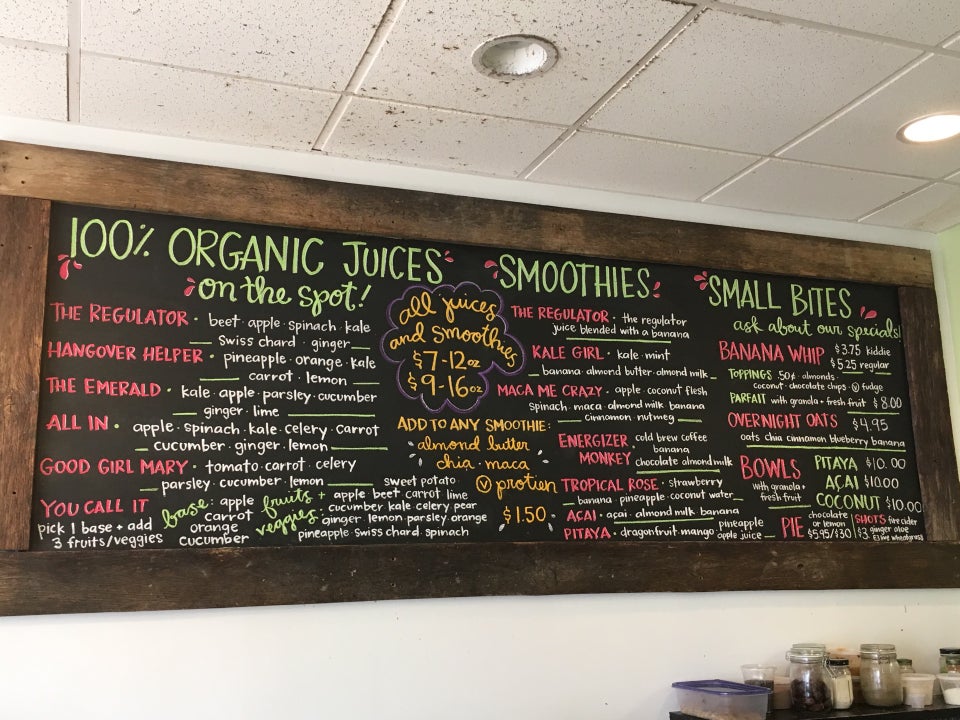 100% ORGANIC JUICES
on the spot!
THE REGULATOR · beet · apple · spinach · kale
Swiss chard · ginger
HANGOVER HELPER · pineapple · orange · kale
carrot · lemon
THE EMERALD · kale · apple · parsley · cucumber
ginger · lime
ALL IN · apple · spinach · kale · celery · carrot
cucumber · ginger · lemon
GOOD GIRL MARY · tomato · carrot · celery
parsley · cucumber · lemon
YOU CALL IT
pick 1 base + add
3 fruits/veggies
base: apple
carrot
orange
cucumber
fruits +
veggies:
sweet potato
apple beet carrot lime
cucumber kale celery pear
ginger · lemon · parsley · orange
pineapple · swiss chard · spinach
all juices
and smoothies
$7-12oz
$9-16oz
ADD TO ANY SMOOTHIE:
almond butter
chia · maca
V protien
$1.50
SMOOTHIES
THE REGULATOR · the regulator
juice blended with a banana
KALE GIRL · kale · mint
banana · almond butter · almond milk
MACA ME CRAZY · apple · coconut flesh
spinach · maca · almond milk banana
cinnamon · nutmeg
ENERGIZER
MONKEY
cold brew coffee
banana
chocolate almond milk
TROPICAL ROSE · strawberry
banana · pineapple · coconut water
AÇAI · açai · almond milk banana
PITAYA · dragonfruit · mango pineapple
apple juice
SMALL BITES
ask about our specials!
BANANA WHIP $3.75 kiddie
$5.25 regular
TOPPINGS 50¢ · almonds ·
coconut · chocolate chips · V fudge
PARFAIT with granola + fresh fruit $8.00
OVERNIGHT OATS $4.95
oats chia cinnamon blueberry banana
BOWLS
with granola +
fresh fruit
PITAYA $10.00
AÇAI $10.00
COCONUT $10.00
PIE chocolate
or lemon
$5.95/$30
SHOTS fire cider
$3. ginger aloe
wheatgrass